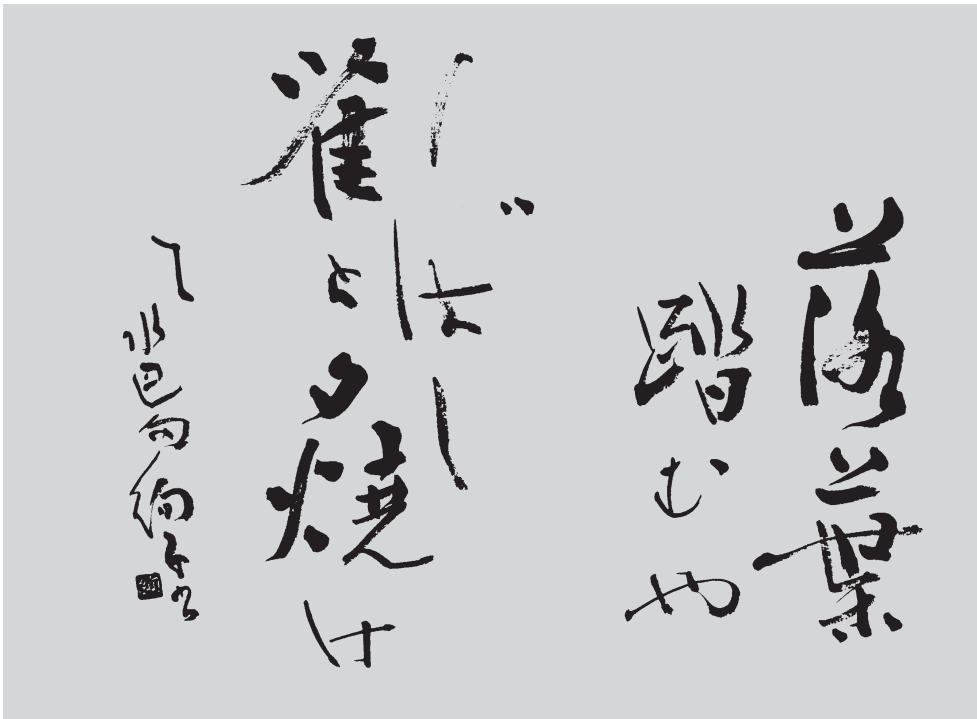 落葉
踏むや
しばし
雀と夕焼け
て 水巴句 絢子書